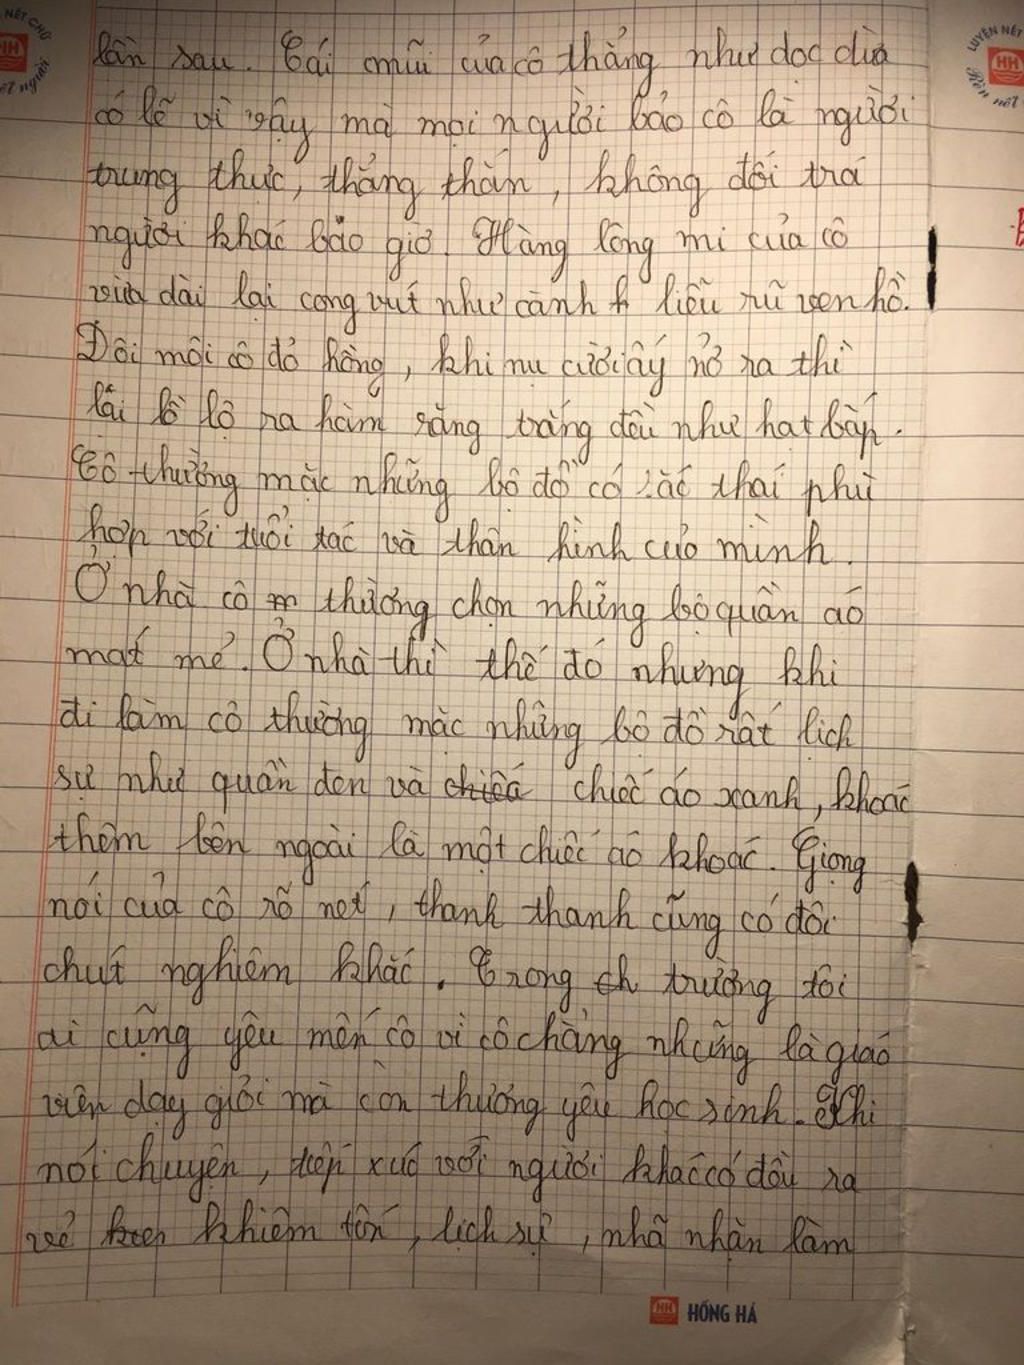 NÉT CHỮ
HH
nết người
LUYỆN NÉT
HH
Rèn nết
lần sau. Cái mũi của cô thẳng như dọc dừa
có lẽ vì vậy mà mọi người bảo cô là người
trung thực, thẳng thắn, không đối trá
người khác bao giờ. Hàng lông mi của cô
vừa dài lại cong vút như cành liễu rũ ven hồ.
Đôi môi cô đỏ hồng, khi nụ cười ấy nở ra thì
lại lồ lộ ra hàm răng trắng đều như hạt bắp.
Cô thường mặc những bộ đồ có sắc thái phù
hợp với tuổi tác và thân hình của mình.
Ở nhà cô thường chọn những bộ quần áo
mát mẻ. Ở nhà thì thế đó nhưng khi
đi làm cô thường mặc những bộ đồ rất lịch
sự như quần đen và chiếc áo xanh, khoác
thêm bên ngoài là một chiếc áo khoác. Giọng
nói của cô rõ nét, thanh thanh cũng có đôi
chút nghiêm khắc. Trong trường tôi
ai cũng yêu mến cô vì cô chẳng những là giáo
viên dạy giỏi mà còn thương yêu học sinh. Khi
nói chuyện, tiếp xúc với người khác cô đều ra
vẻ khiêm tốn, lịch sự, nhã nhặn làm
HH HỒNG HÀ